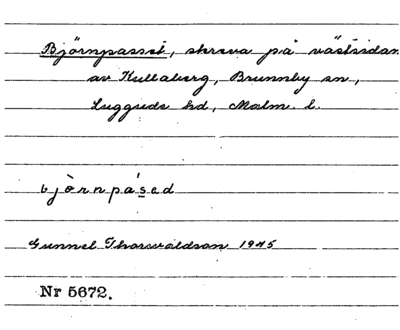 Björnpasset, skreva på västsidan
av Kullaberg, Brunnby sn,
Luggude hd, Malm. l.
bjὸ̈rnpás̲ed
Gunnel Thorsvaldson 1945
Nr 5672.